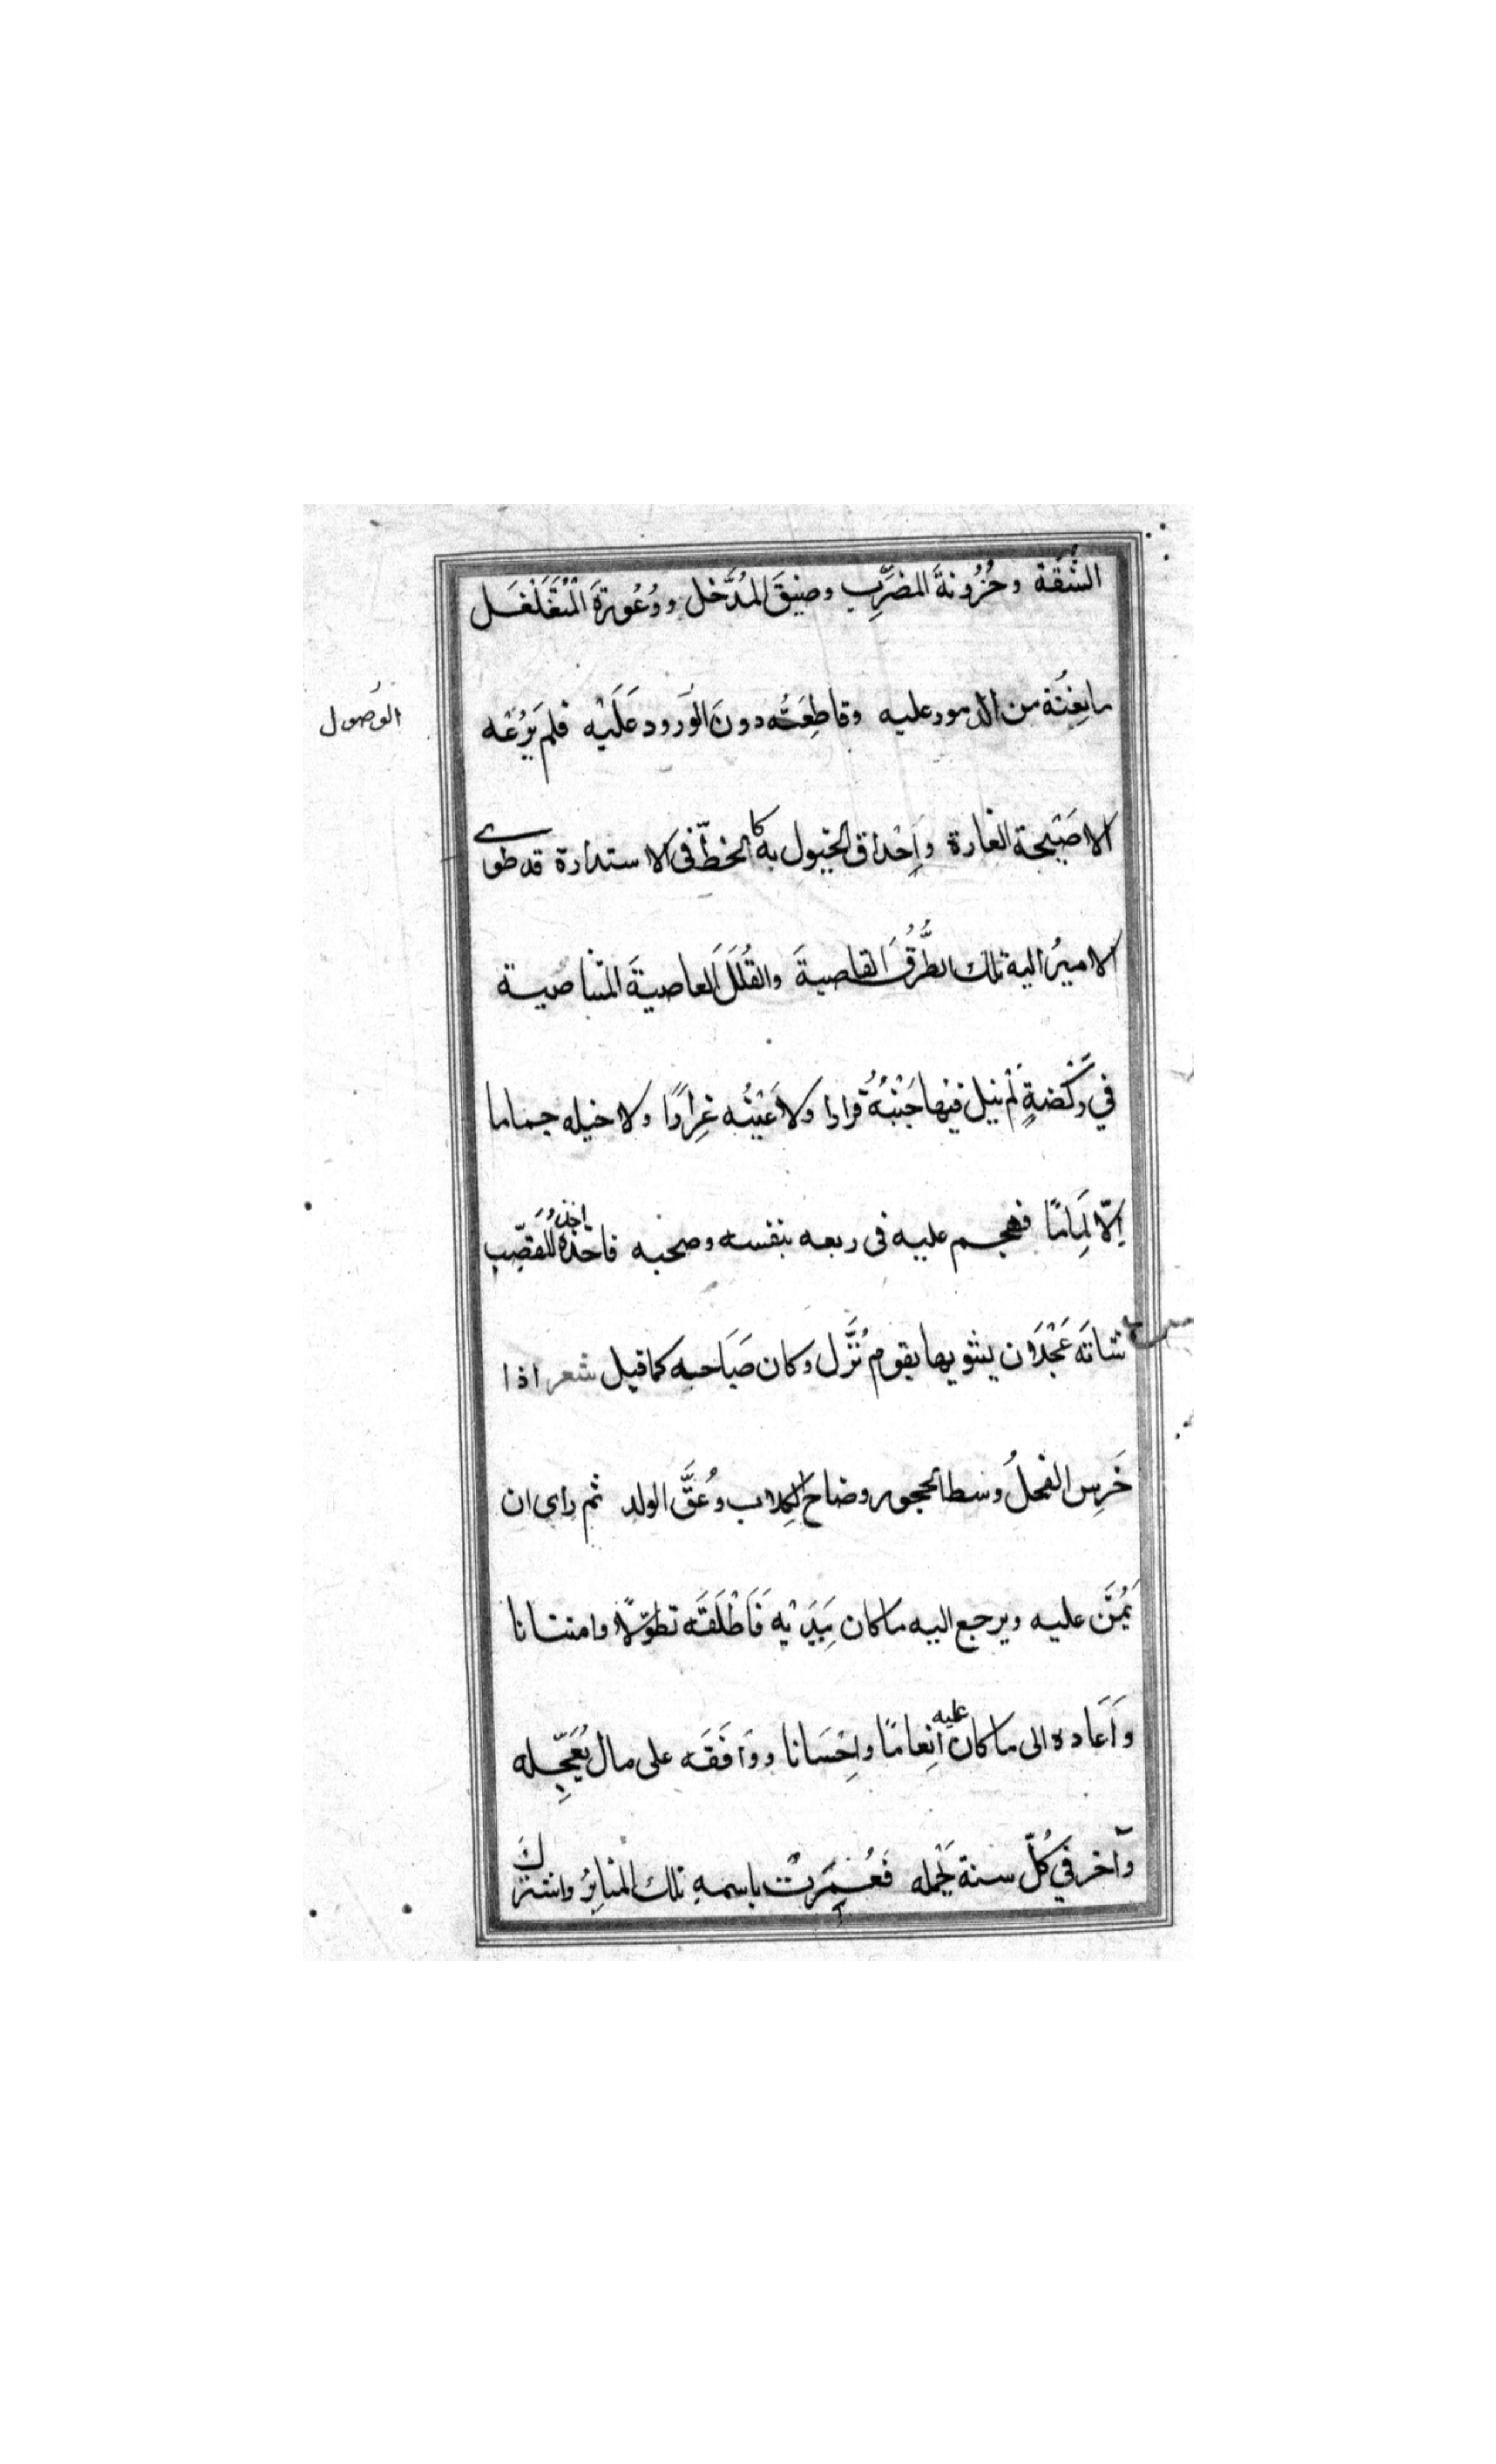 الشُقَّةَ وحُزُونةَ المضَرِّب وضيقَ المُدَّخل ووُعُورَةَ المُتَغَلغَل
مانِعَتُه من الدمور عليه وقاطِعَتُه دونَ الوَرود عَلَيْه فلم يَرُعْه
الوصول
الا صَبْحة الغارة وَاِحْداق الخيول به كالخطّ فى الاستدارة قد طوى
الاميرُ اليه تلك الطُّرُقَ القاصيةَ والقُلَلَ العاصيةَ المتناصية
في رَكْضةٍ لَمْ ينل فيها جَنْبُهُ قرارا ولا عَيْنُه غِرارًا ولا خيله جماما
اِلّا لِمَامًا فهجم عليه فى ربعه بنفسه وصحبه فاخذه اخذ المُقَصِّب
شاتَه عَجْلَان يشويها بقوم نُزَّل وكان صَبَاحه كما قيل شعر اذا
خَرِس الفحلُ وسط الحجور وصاح الكِلاب وعُقَّ الولد ثم راى ان
يَمُنَّ عليه ويرجع اليه ما كان بِيَدَيْهِ فَاَطْلَقَه تطوّلًا وامتنانا
وَاَعَاده الى ما كان عليه اِنعامًا واِحْسَانا ووَافَقَه على مال يُعَجِّله
وآخر في كُلّ سنة يَحْمله فَعُمِرَتْ باسمهِ تلك المنابِرُ واشترك